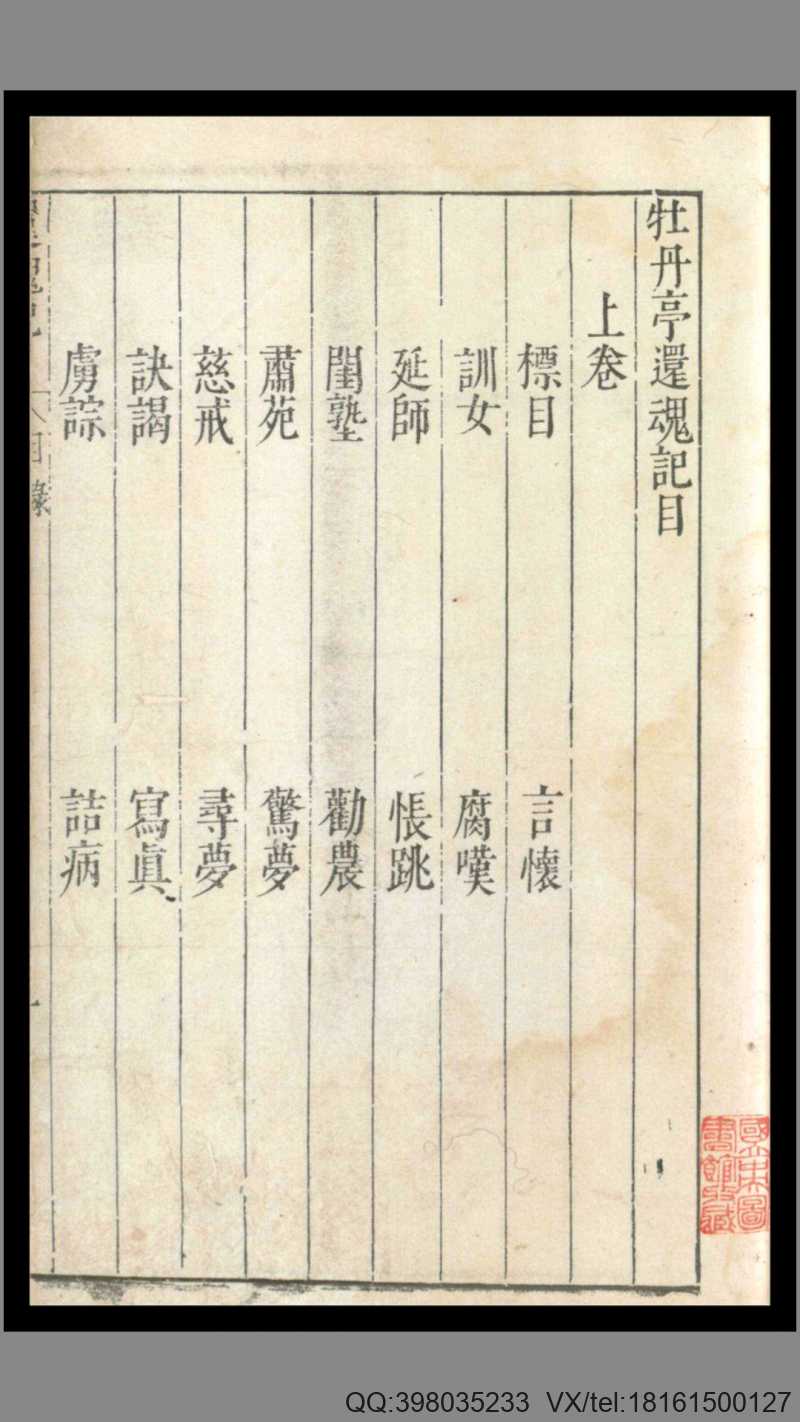 牡丹亭還魂記目
上卷
標目 言懷
訓女 腐嘆
延師 悵跳
閨塾 勸農
肅苑 驚夢
慈戒 尋夢
訣謁 寫眞
虜諒 詰病
目錄
一
國立中央圖書館收藏
QQ:398035233 VX/tel:18161500127